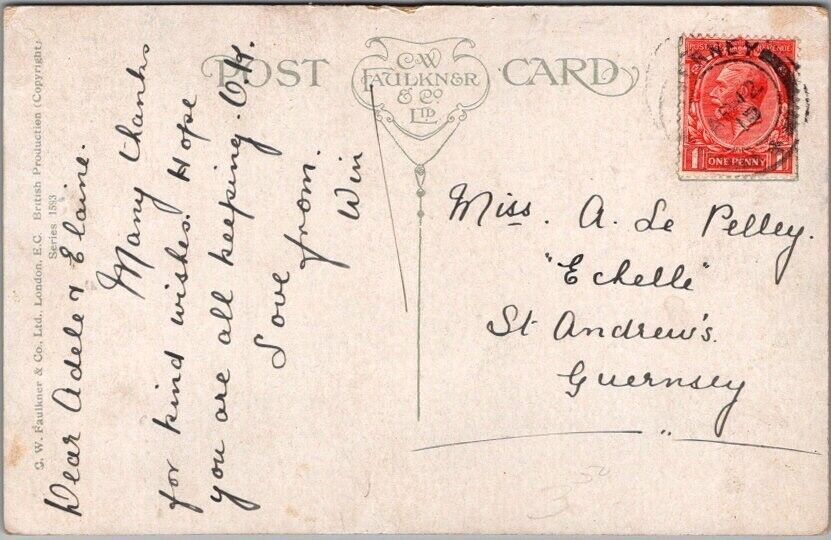 POST CARD
C.W.
FAULKNER
& Co
LTD
C. W. Faulkner & Co., Ltd. London, E.C. British Production (Copyright)
Series 1593
Dear Adele & Elaine.
Many thanks
for kind wishes. Hope
you are all keeping. O.K.
Love from.
Win
Miss. A. Le Pelley.
"Echelle"
St Andrew's.
Guernsey
ONE PENNY
3 50